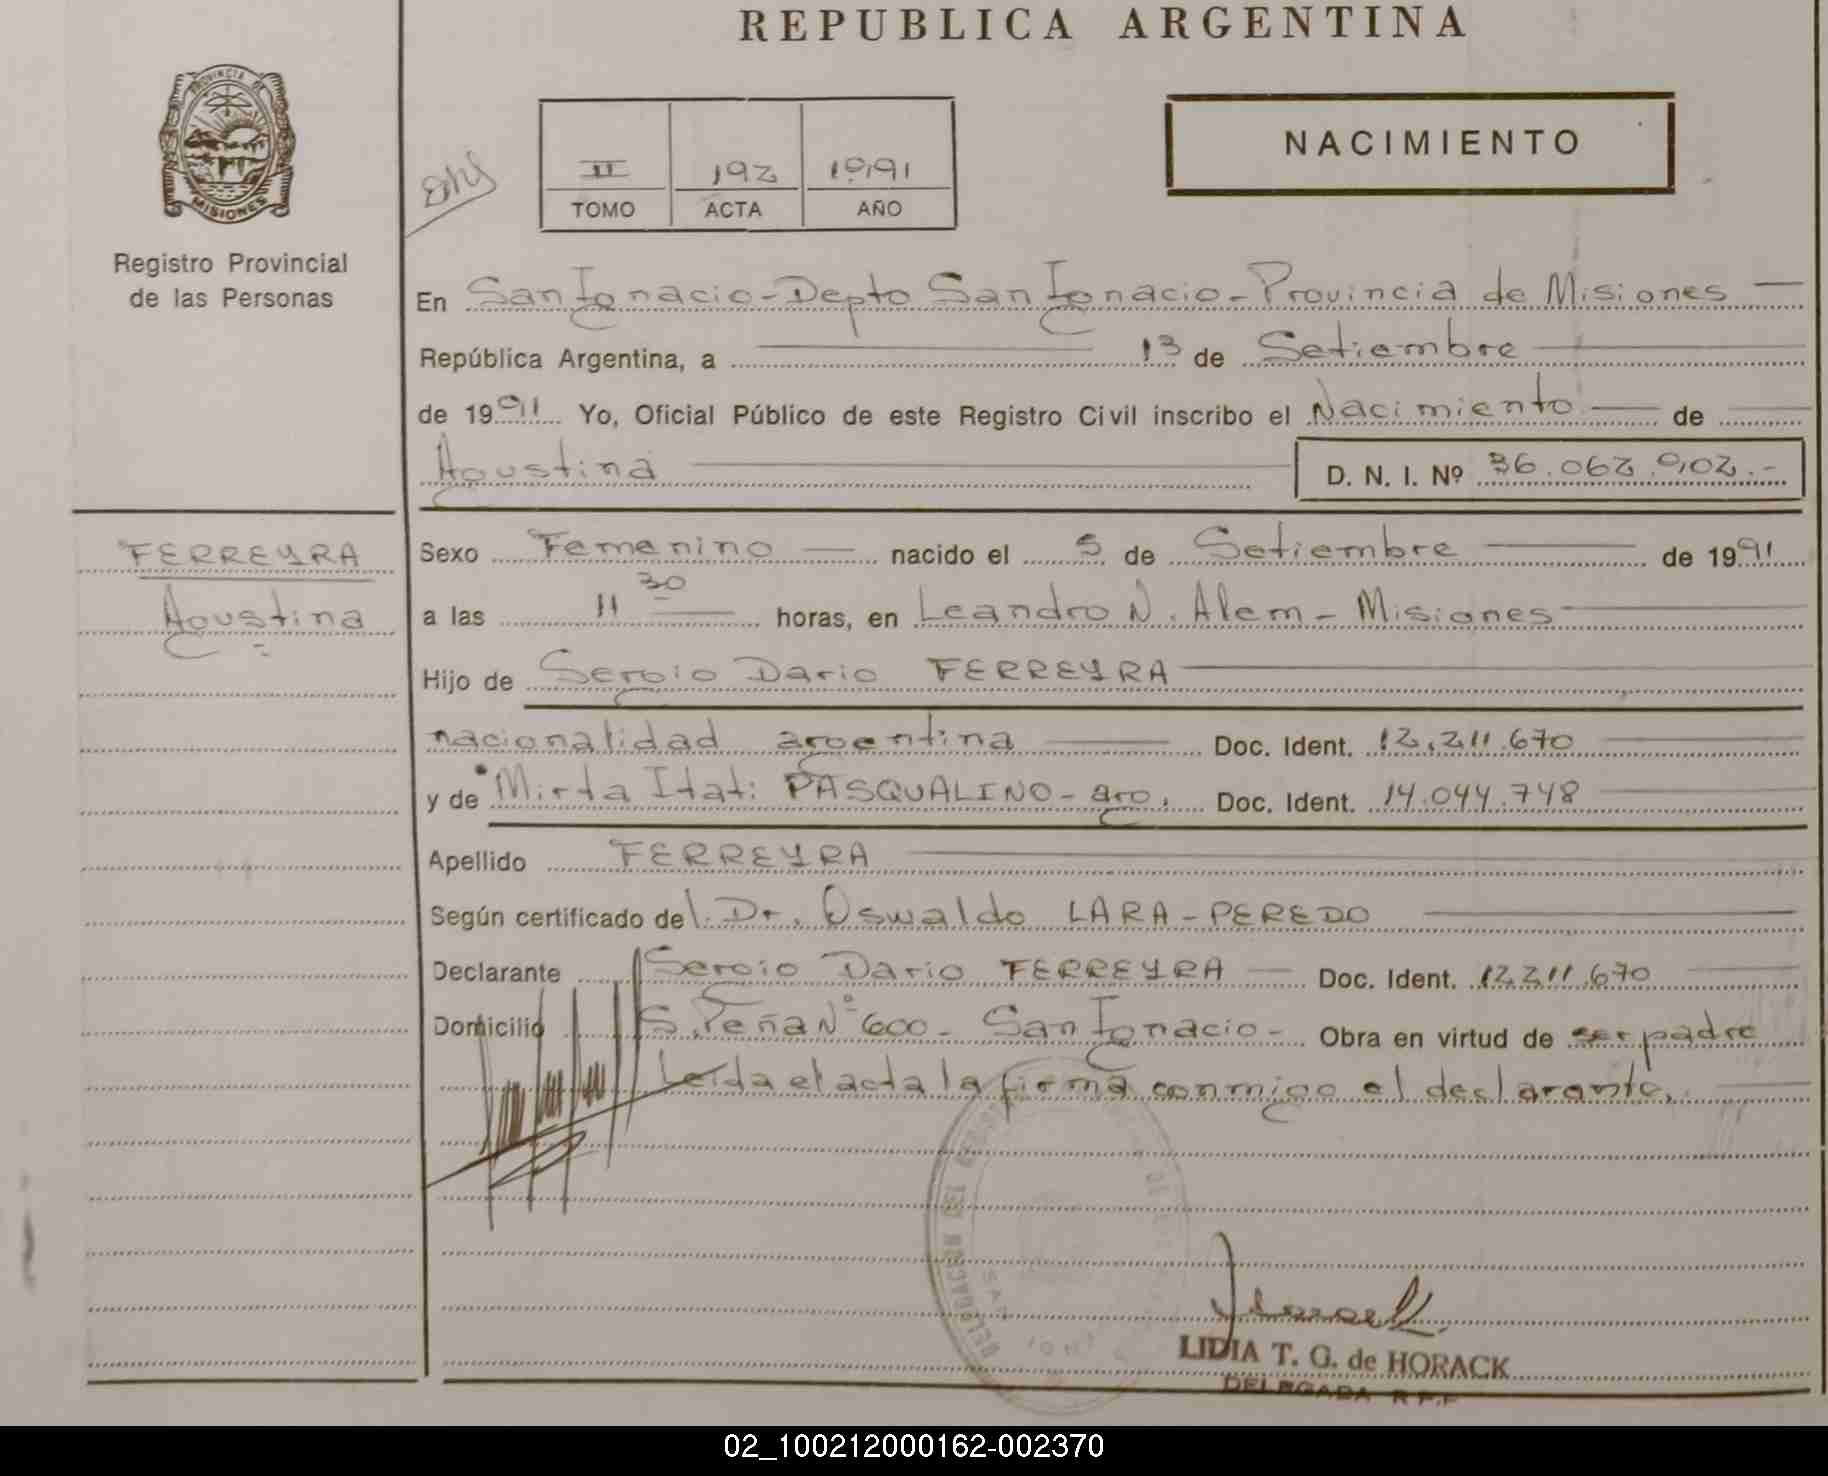 REPUBLICA ARGENTINA
PROVINCIA DE
MISIONES
Registro Provincial
de las Personas
II 192 1991
TOMO ACTA AÑO
NACIMIENTO
En San Ignacio - Depto San Ignacio - Provincia de Misiones
República Argentina, a 13 de Setiembre
de 1991 Yo, Oficial Público de este Registro Civil inscribo el Nacimiento de
Agustina D. N. I. Nº 36.062.902.-
FERREYRA
Agustina
Sexo Femenino nacido el 5 de Setiembre de 1991
a las 11 30 horas, en Leandro N. Alem - Misiones
Hijo de Sergio Dario FERREYRA
nacionalidad argentina Doc. Ident. 12.211.670
y de Mirta Itati PASQUALINO - arg. Doc. Ident. 14.044.748
Apellido FERREYRA
Según certificado del Dr. Oswaldo LARA - PEREDO
Declarante Sergio Dario FERREYRA Doc. Ident. 12.211.670
Domicilio S. Peña Nº 600 - San Ignacio - Obra en virtud de ser padre
Leída el acta la firma conmigo el declarante.
LIDIA T. G. de HORACK
DELEGADA R.P.P
02_100212000162-002370